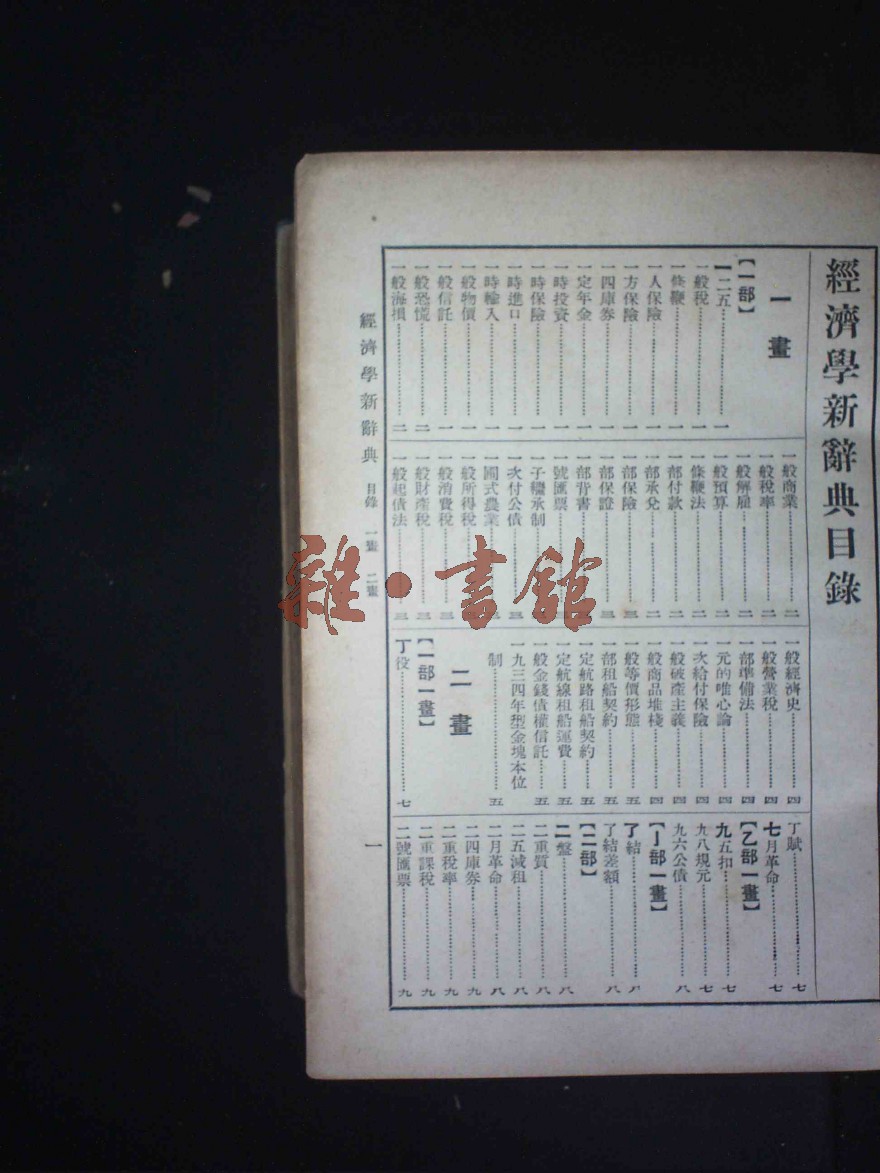 經濟學新辭典目錄
一畫
【一部】
一二五……一
一般稅……一
一條鞭……一
一人保險……一
一方保險……一
一四庫券……一
一定年金……一
一時投資……一
一時保險……一
一時進口……一
一時輸入……一
一般物價……一
一般信託……一
一般恐慌……二
一般海損……二
一般商業……二
一般稅率……二
一般解雇……二
一般預算……二
一條鞭法……二
一部付款……二
一部承兌……二
一部保險……三
一部保證……三
一部背書……三
一號匯票……三
一子繼承制
一次付公債……三
一圃式農業
一般所得稅……三
一般消費稅……三
一般財產稅……三
一般起債法……三
一般經濟史……四
一般營業稅……四
一部準備法……四
一元的唯心論……四
一次給付保險……四
一般破產主義……四
一般商品堆棧……四
一般等價形態……五
一部租船契約……五
一定航路租船契約……五
一定航線租船運費……五
一般金錢債權信託……五
一九三四年型金塊本位
制……五
二畫
【一部一畫】
丁役……七
丁賦……七
七月革命……七
【乙部一畫】
九五扣……七
九八規元……七
九六公債……八
【亅部一畫】
了結……八
了結差額……八
【二部】
二盤……八
二重質……八
二五減租……八
二月革命……八
二四庫券……九
二重稅率……九
二重課稅……九
二號匯票……九
經濟學新辭典 目錄 一畫 二畫
一
雜·書館